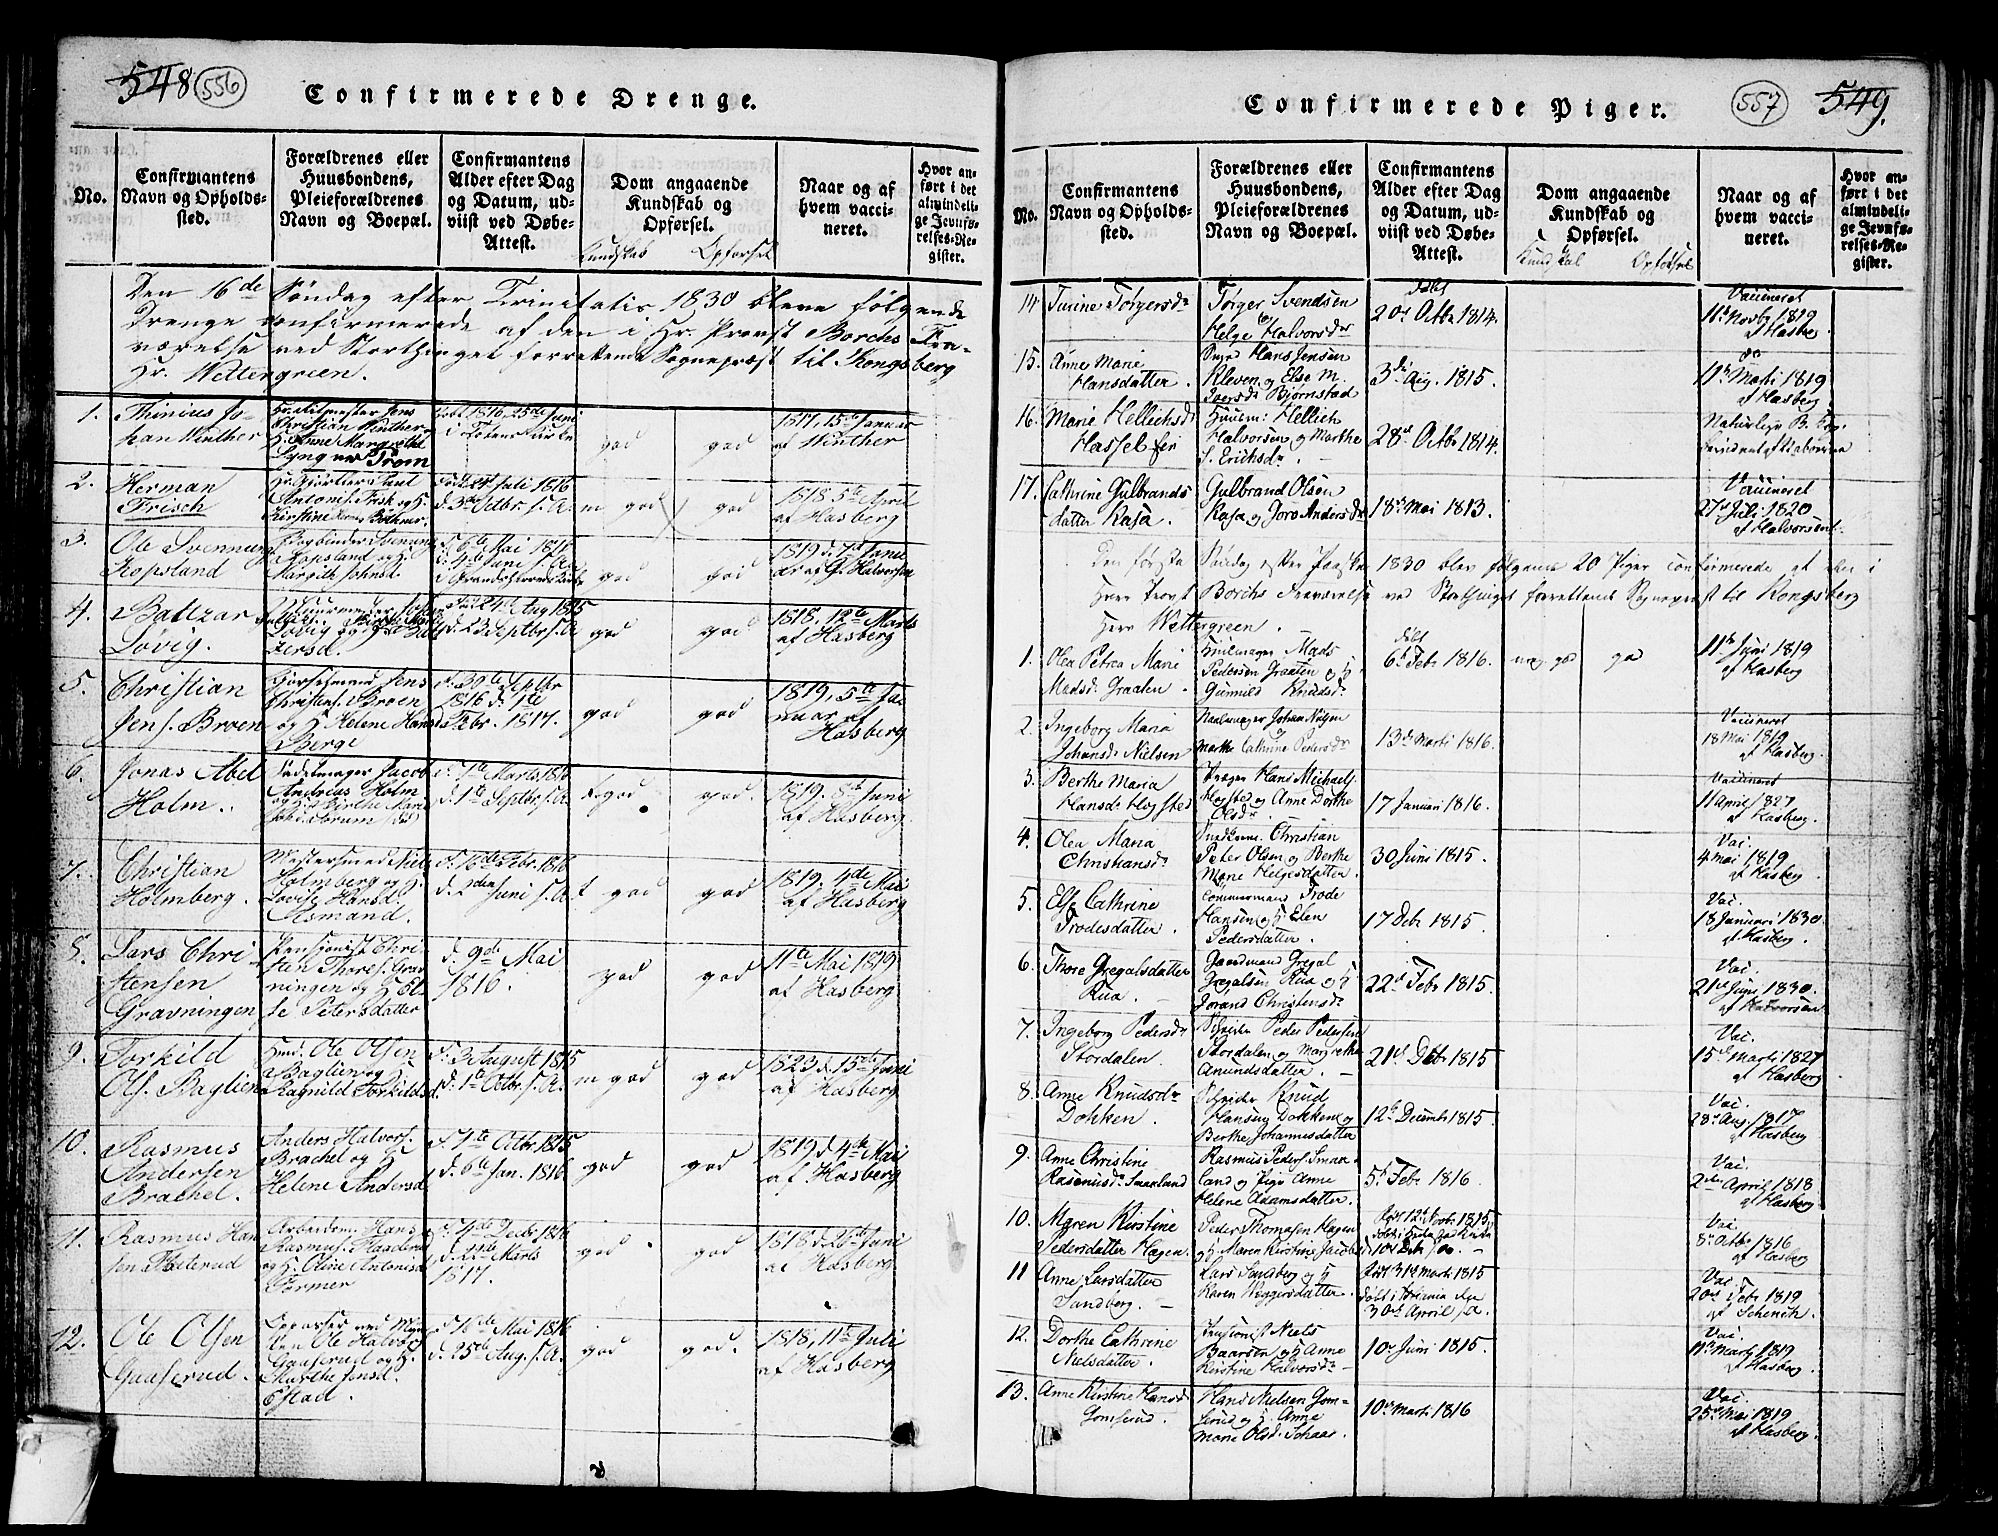 548 556
Confirmerede Drenge.
No.
Confirmantens
Navn og Opholds-
sted.
Forældrenes eller
Huusbondens,
Pleieforældrenes
Navn og Boepæl.
Confirmantens
Alder efter Dag
og Datum, ud-
viist ved Døbe-
Attest.
Dom angaaende
Kundskab og
Opførsel.
Kundskab Opførsel
Naar og af
hvem vacci-
neret.
Hvor an-
ført i det
almindeli-
ge Jevnfø-
relses-Re-
gister.
Den 16de Søndag efter Trinitatis 1830 bleve følgende
Drenge confirmerede af den i Hr. Provst Borchs Fra-
værelse ved Storthinget forrettende Sognepræst til Kongsberg
Hr. Wettergreen.
1.
Thinius Jo-
han Winther
Christian Winther
Anne Margrethe
Lyng
1816, 25de Juni
god
god
1817, 15de Januar
af Winther
2.
Herman
Frisch
Juli 1816
d. 3de Octbr. s. A.
m god
god
1818 5te April
af Hasberg
3.
Ole Svennung
Ropsland
Ropsland og H.
Mai 1816
god
god
af G. Halvorsen
4.
Baltzar
Løvig.
Løvig og
zersd.
24de Aug 1815
d. 23 Septbr. s. A
god
god
1818. 12te Marts
af Hasberg
5.
Christian
Jens. Broen
Christens. Broen
og H. Helene Hans
Berge
1816 d. 1te
Febr. 1817.
god
god
1819, 5te Ja-
nuar af
Hasberg
6.
Jonas Abel
Holm.
Sadelmager Jacob
Andreas Holm
d. 1te Septbr. s. A
god
god.
1819. 8de Juni
af Hasberg.
7.
Christian
Holmberg.
Mestersmed Niels
Holmberg og H.
Lovise Hansd.
Asmand.
f. 16de Febr. 1816
d. 2den Juni s. A
god
god
1819 4de Mai
af Hasberg
8.
Lars Chri-
stensen
Gravningen
Pensionist Chri-
sten Thores. Grav
ningen og H. El-
se Petersdatter
d. 9de Mai
1816.
god
god
11te Mai 1819
af Hasberg
9.
Torkild
Ols. Baglien
Huusm. Ole Olsen
Baglien og H.
Ragnild Torkildsd.
f. 3 August 1815
d. 1te Octbr. s. A.
m god
god
1823 d. 15de Juni
af Hasberg
10.
Rasmus
Andersen
Brachel.
Anders Halvors.
Brachel og H.
Helene Andersd
f. 1te Octbr. 1815
d. 6te Jan. 1816
god
god
1819 d. 4de Mai
af Hasberg
11.
Rasmus Han
sen
Arbeidsm. Hans
Rasmus.
og H. Olive Antonisd
Former
f. 4de Decbr 1816
Marts
1817.
god
god
af Hasberg
12.
Ole Olsen
Gaaserud.
Ole Halvors
Gaaserud og H.
Marthe Jensd.
Efstad.
f. 16de Mai 1816
d. 25de Aug. s. A.
god
god.
1818, 11te Juli
af Hasberg
Confirmerede Piger.
557 549.
No.
Confirmantens
Navn og Opholds-
sted.
Forældrenes eller
Huusbondens,
Pleieforældrenes
Navn og Boepæl.
Confirmantens
Alder efter Dag
og Datum, ud-
viist ved Døbe-
Attest.
Dom angaaende
Kundskab og
Opførsel.
Kundskab Opførsel
Naar og af
hvem vacci-
neret.
Hvor an-
ført i det
almindeli-
ge Jevnfø-
relses-Re-
gister.
14
Turine Torgersdr
Torger Svendsen
og
Helge Halvorsdr
født
20de Octbr 1814.
Vaccineret
11te Novbr 1819
af Hasberg
15.
Anne Marie
Hansdatter.
Hans Jensen
Kleven og Else M.
Iversdr Bjørnstad
3die Aug. 1815.
do
11te Marti 1819
af Hasberg
16.
Marie Hellichsdr
Hasselfen
Huusm: Hellich
Halvorsen og Marthe
S. Erichsdr.
28de Octbr 1814.
Naturlige B.
17.
Cathrine Gulbrands
datter Rasa.
Gulbrand Olsen
Rasa og Joro Andersdr
18de Mai 1813.
Vaccineret
27de Juli 1820
af Halvorsen
Den første Søndag efter Paaske 1830 blev følgende 20 Piger confirmerede af den i
Herr Provst Borchs Fraværelse ved Storthinget forrettende Sognepræst til Kongsberg
Herr Wettergreen.
1.
Olea Petrea Marie
Madsd. Graaten.
Mads
Pedersen Graaten og H
Gunnild Knudsdr
født
6te Febr 1816.
meg god
god
11te Juni 1819
af Hasberg
2.
Ingeborg Maria
Johansdr Nielsen
Johan Nilsen
og
Marthe Cathrine Pedersdr
13de Marti 1816.
Vaccineret
18 Mai 1819
af Hasberg
3.
Berthe Maria
Hansdr Hogsted
Hans Michaels.
Hogsted og Anne Dorthe
Olsdr.
17 Januari 1816.
Vaccineret
11 April 1827
af Hasberg
4.
Olea Maria
Christiansdr
Christian
Peter Olsen og Berthe
Marie Helgesdatter.
30 Juni 1815.
Vac.
4 Mai 1819
af Hasberg
5.
Else Cathrine
Frodesdatter
Tømmermand Frode
Hansen og H Elen
Pedersdatter.
17 Debr 1815.
Vac.
18 Januari 1830.
af Hasberg.
6.
Thore Gregalsdatter
Rua.
Gaardmand Gregal
Gregalsen Rua og H
Jorand Christensdr
22de Febr 1815.
Vac.
21de Juni 1830.
af Halvorsen
7.
Ingeborg Pedersdr
Stordalen.
Peder Pedersen
Stordalen og Margrethe
Amundsdatter.
21de Debr 1815
Vac.
15de Marti 1827
af Hasberg
8.
Anne Knudsdr
Dokken.
Knud
Hansen Dokken og
Berthe Johannisdatter
12te Decembr 1815.
Vac.
28de Aug. 1817
af Hasberg
9.
Anne Christine
Rasmusdr Smaaland
Rasmus Peders. Smaa
land og Pige Anne
Helene Adamsdatter.
5te Febr 1816.
Vac.
2den April 1818
af Hasberg
10.
Maren Kirstine
Pedersdatter Hagen.
Peder Thomasen Hagen
og H. Maren Kirstine Jacobsd
født 12te Novbr 1815
10de Debr s. a.
Vac.
8de Octbr 1816
af Hasberg
11
Anne Larsdatter
Sandberg.
Lars Sandberg og H
Karen Wiggersdatter.
født 31de Marti 1815
30de April s. a.
Vac.
20de Febr 1819
af Schenck.
12.
Dorthe Cathrine
Nielsdatter.
Pensionist Niels
Baarsen og H Anne
Kirstine Halvorsdr
10de Juni 1815.
Vac.
11te Marti 1819
af Hasberg
13.
Anne Kirstine Hansdr
Gomserud.
Hans Nielsen Gom-
serud og H. Anne
Marie Olsdr. Schaar.
10de Marti 1816
Vac.
25de Mai 1819
af Hasberg.